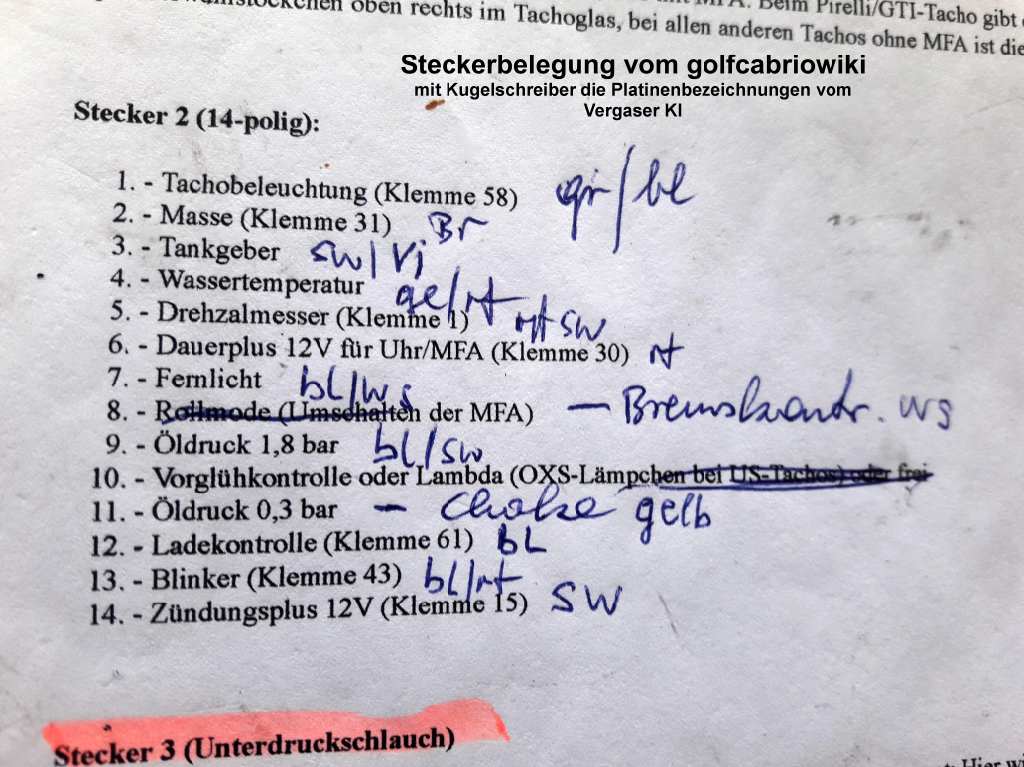 oben rechts im Tachoglas, bei allen anderen Tachos ohne MFA ist die
MFA. Beim Pirelli/GTI-Tacho gibt
Steckerbelegung vom golfcabriowiki
mit Kugelschreiber die Platinenbezeichnungen vom
Vergaser KI
Stecker 2 (14-polig):
1. - Tachobeleuchtung (Klemme 58) gr/bl
2. - Masse (Klemme 31) Br
3. - Tankgeber sw/Vi
4. - Wassertemperatur ge/rt
5. - Drehzalmesser (Klemme 1) rt sw
6. - Dauerplus 12V für Uhr/MFA (Klemme 30) rt
7. - Fernlicht bl/ws
8. - Rollmode (Umschalten der MFA) — Bremskontr. ws
9. - Öldruck 1,8 bar bl/sw
10. - Vorglühkontrolle oder Lambda (OXS-Lämpchen bei US-Tachos) oder frei
11. - Öldruck 0,3 bar - Choke gelb
12. - Ladekontrolle (Klemme 61) bL
13. - Blinker (Klemme 43) bl/rt
14. - Zündungsplus 12V (Klemme 15) SW
Stecker 3 (Unterdruckschlauch)